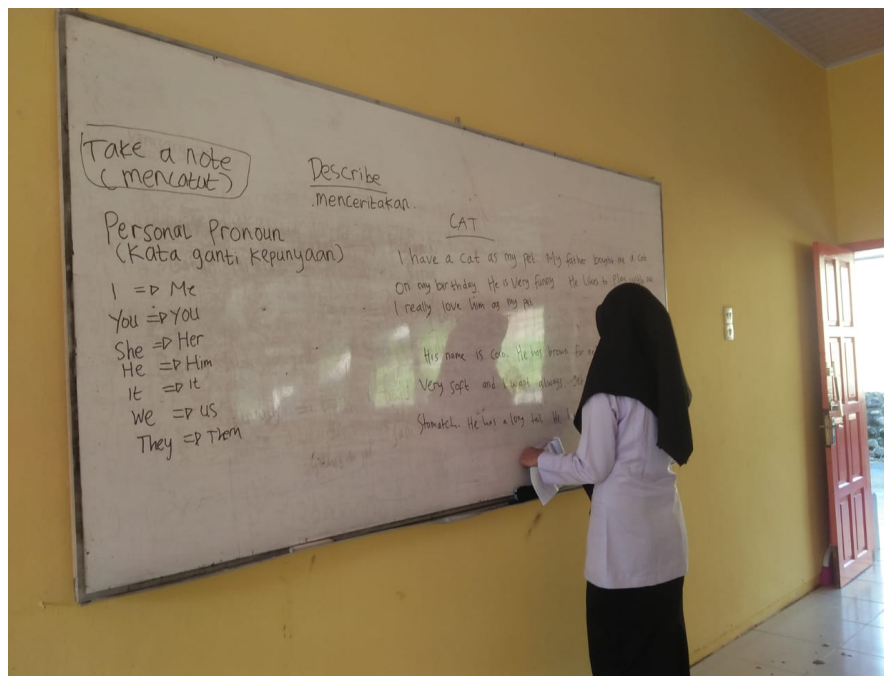 Take a note
(mencatut)
Describe
menceritakan.
Personal Pronoun
(Kata ganti Kepunyaan)
I => Me
You => You
She => Her
He => Him
It => It
We => us
They => Them
CAT
I have a cat as my pet. My father bought me a cat
on my birthday. He is very funny. He likes to Play with me
I really love him as my pet
His name is Colo. He has brown fur
Very soft and I want always
Stomatch. He has a long tail. He